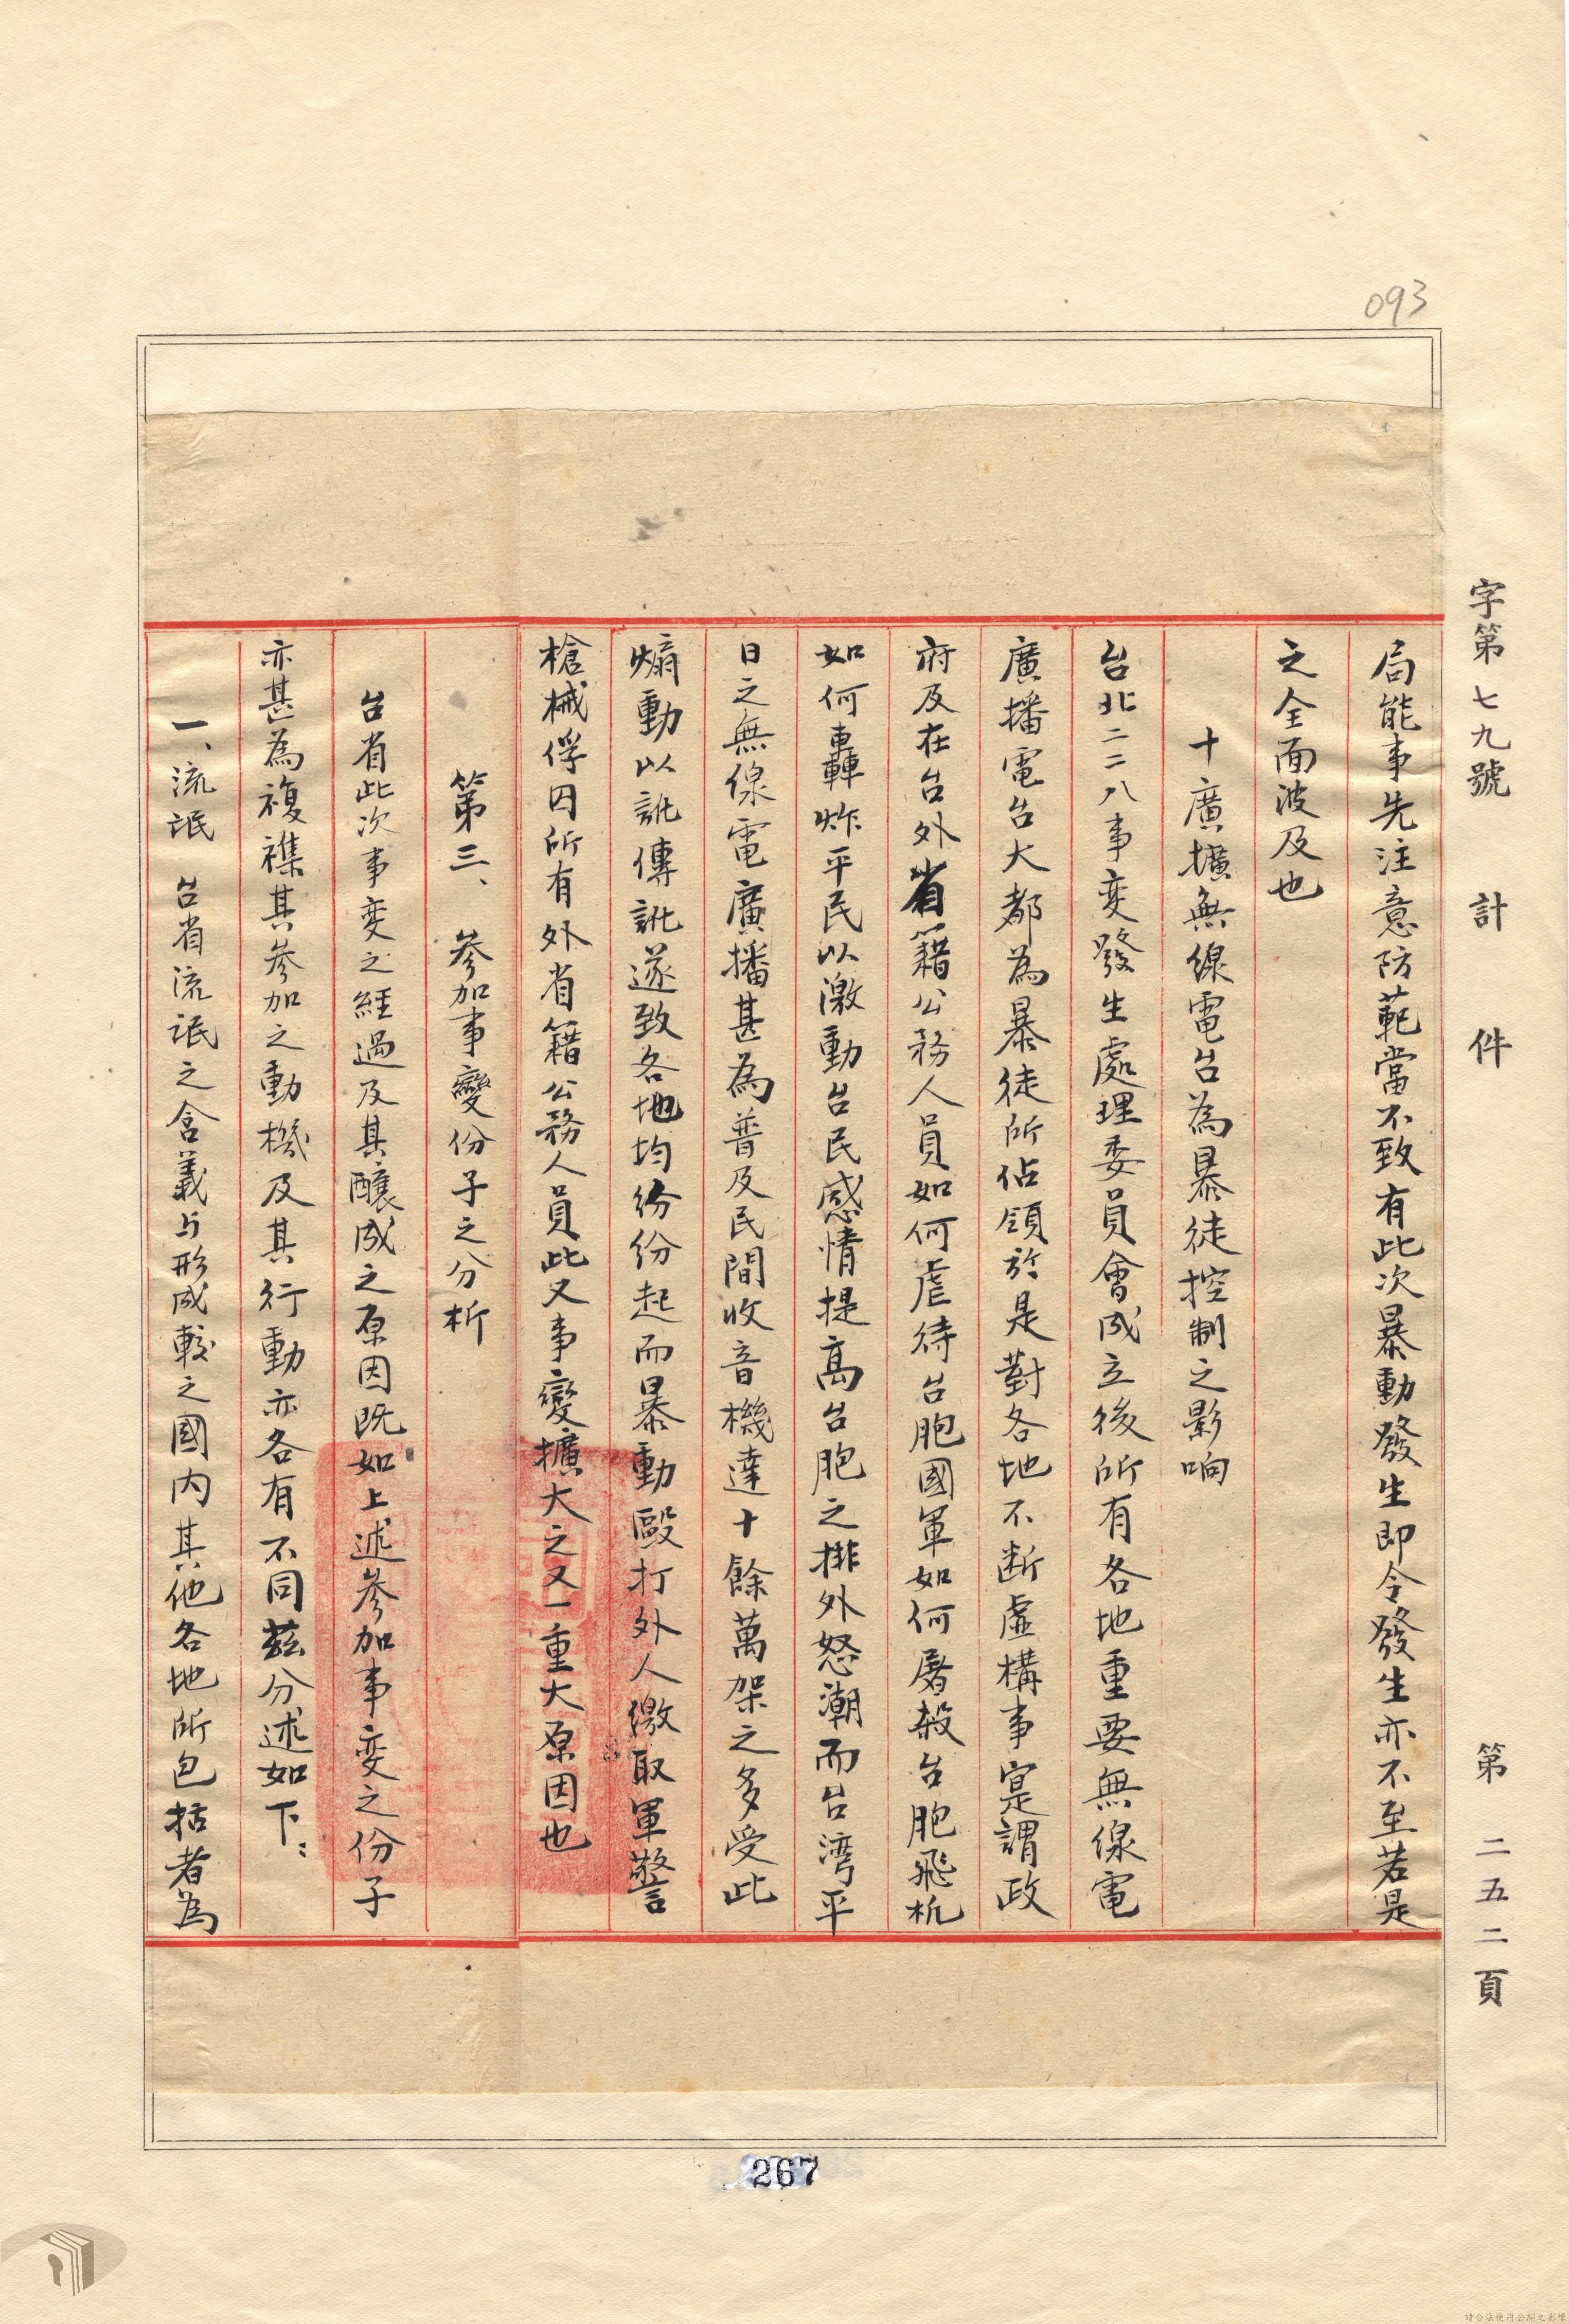 093
字第七九號 計 件 第二五二頁
局能事先注意防範當不致有此次暴動發生即令發生亦不至若是
之全面波及也
十廣擴無線電台為暴徒控制之影响
台北二二八事变發生處理委員會成立後所有各地重要無線電
廣播電台大都為暴徒所佔領於是對各地不断虛構事寔謂政
府及在台外省籍公務人員如何虐待台胞國軍如何屠殺台胞飛机
如何轟炸平民以激動台民感情提高台胞之排外怒潮而台湾平
日之無線電廣播甚為普及民間收音機達十餘萬架之多受此
煽動以訛傳訛遂致各地均紛紛起而暴動毆打外人繳取軍警
槍械俘囚所有外省籍公務人員此又事變擴大之又一重大原因也
第三、參加事變份子之分析
台省此次事变之經過及其釀成之原因既如上述參加事变之份子
亦甚為複襍其參加之動機及其行動亦各有不同茲分述如下：
一、流氓 台省流氓之含義与形成較之國內其他各地所包括者為
267
請合法使用公開之影像